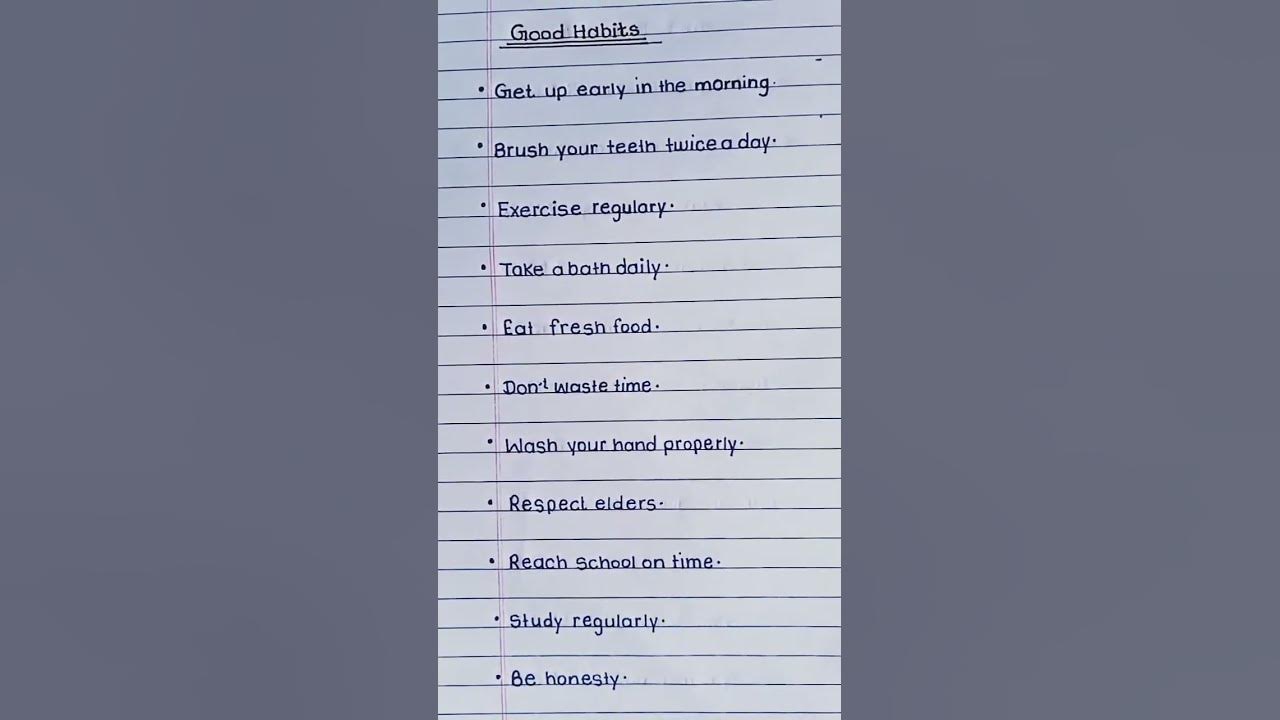 Good Habits
• Get up early in the morning.
• Brush your teeth twice a day.
• Exercise regulary.
• Take a bath daily.
• Eat fresh food.
• Don't waste time.
• Wash your hand properly.
• Respect elders.
• Reach school on time.
• Study regularly.
• Be honesty.